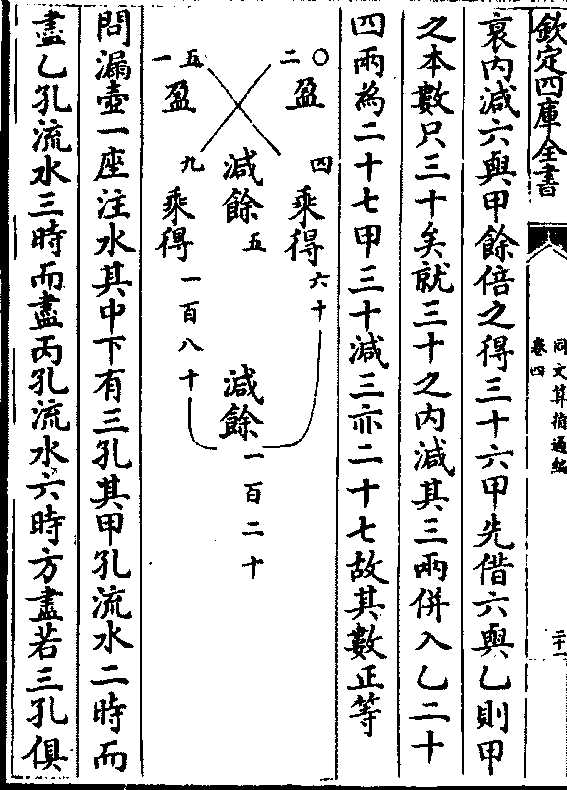 欽定四庫全書
同文算指通編
卷四
二十一
衰内減六與甲餘倍之得三十六甲先借六與乙則甲
之本數只三十矣就三十之内減其三兩併入乙二十
四兩為二十七甲三十減三亦二十七故其數正等
二〇 盈 四 乘得 六十
減餘 五 減餘 一百二十
一五 盈 九 乘得 一百八十
問漏壺一座注水其中下有三孔其甲孔流水二時而
盡乙孔流水三時而盡丙孔流水六時方盡若三孔俱